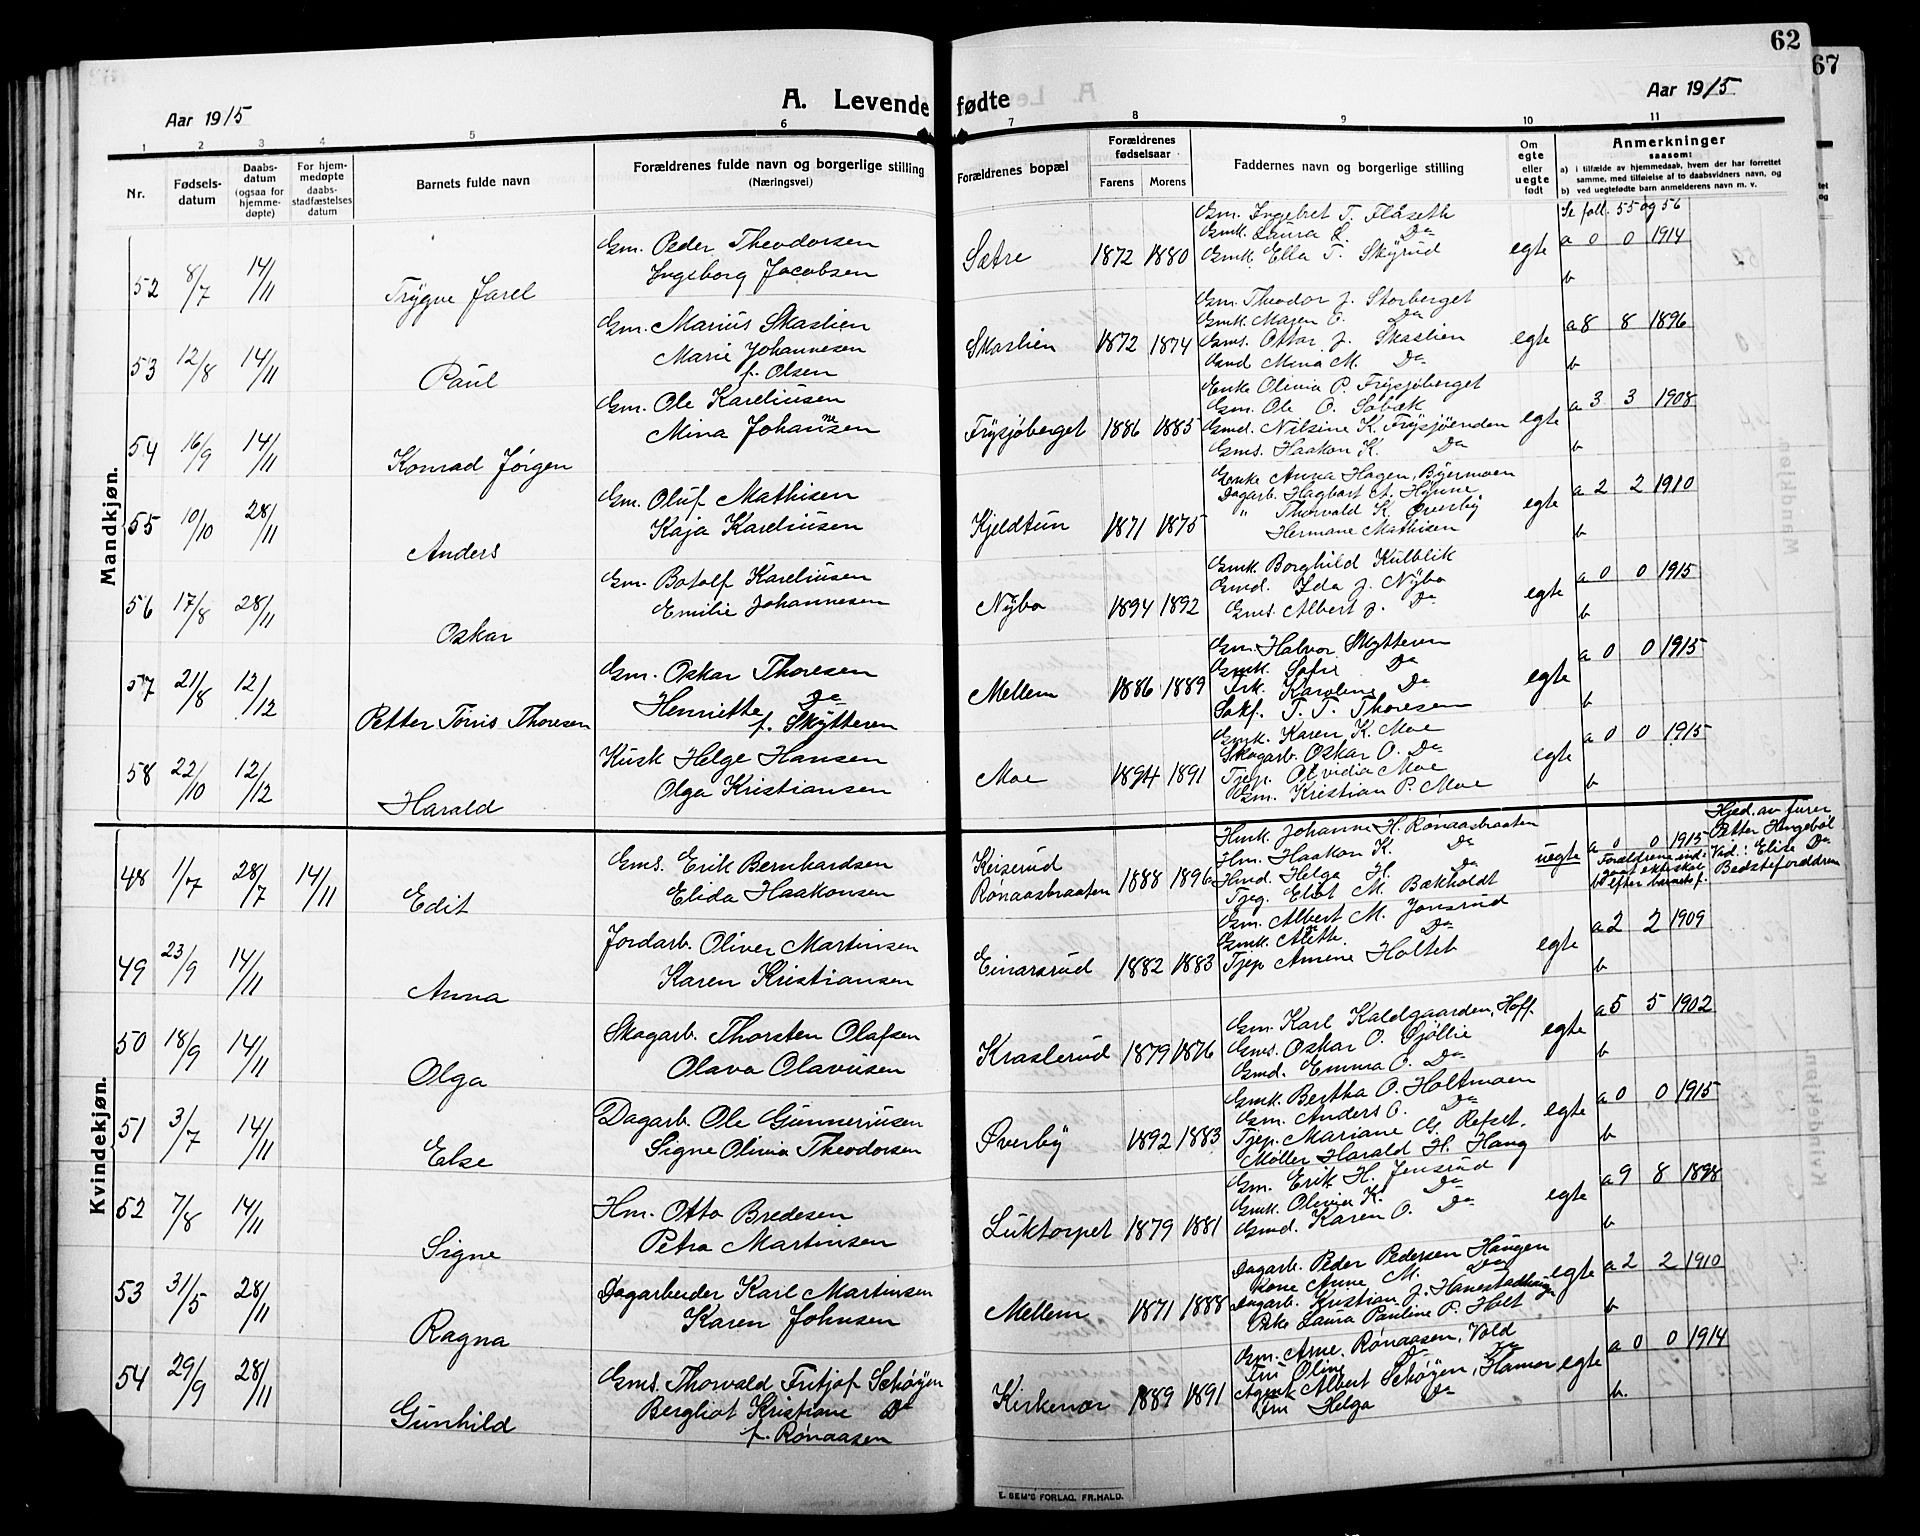 62
67
Aar 1915
A. Levende fødte
Aar 1915
1 2 3 4 5 6 7 8 9 10 11
Nr.
Fødsels-
datum
Daabs-
datum
(ogsaa for
hjemme-
døpte)
For hjem-
medøpte
daabs-
stadfæstelses
datum
Barnets fulde navn
Forældrenes fulde navn og borgerlige stilling
(Næringsvei)
Forældrenes bopæl
Forældrenes
fødselsaar
Farens Morens
Faddernes navn og borgerlige stilling
Om
egte
eller
uegte
født
Anmerkninger
saasom:
a) i tilfælde av hjemmedaab, hvem der har forrettet
samme, med tilføielse af to daabsvidners navn, og
b) ved uegtefødte barn anmelderens navn m. v.
Mandkjøn.
Se foll. 55 og 56
52 8/7 14/11 Trygve Jarel
Gm. Peder Theodorsen
Ingeborg Jacobsen
Sætre 1872 1880
Gm. Ingebret T. Flåseth
Gmk. Laura L. Do
Gmk. Ella T. Skyrud
egte a 0 0 1914
b
53 12/8 14/11 Paul
Gm. Marius Skaslien
Marie Johannesen
f. Olsen
Skaslien 1872 1874
Gm. Theodor J. Storberget
Gmk. Maren O. Do
Gms. Ottar J. Skaslien
Gmd Mina M. Do
egte a 8 8 1896
b
54 16/9 14/11 Konrad Jørgen
Gm. Ole Kareliusen
Mina Johannesen
Frysjøberget 1886 1885
Enke Olivia P. Frysjøberget
Gm. Ole O. Sobæk
Gmd. Nilsine K. Frysjøenden
Gms. Haakon K. Do
egte a 3 3 1908
b
55 10/10 28/11 Anders
Gm. Oluf Mathisen
Kaja Kareliusen
Kjeldtun 1871 1875
Enke Anna Hagen, Byermoen
Dagarb. Hagbart A. Hynne
" Thorvald K. Øverby
Hermane Mathisen
egte a 2 2 1910
b
56 17/8 28/11 Oskar
Gm. Botolf Kareliusen
Emilie Johannesen
Nybo 1894 1892
Gmk. Borghild Kulblik
Gmd. Ida J. Nybo
Gms. Albert J. Do
egte a 0 0 1915
b
57 21/8 12/12 Petter Tønis Thoresen
Gm. Oskar Thoresen
Henriette Do
f. Skytteren
Mellem 1886 1889
Gm. Halvor Skytteren
Gmk. Sofie Do
Frk. Karoline Do
Sakf. T. T. Thoresen
egte a 0 0 1915
b
58 22/10 12/12 Harald
Kusk Helge Hansen
Olga Kristiansen
Moe 1894 1891
Gmk. Karen K. Moe
Skogarb. Oskar O. Do
Tjep. Olvidia Moe
Gm. Kristian P. Moe
egte a 0 0 1915
b
Kvindekjøn.
48 1/7 28/7 14/11 Edit
Gms. Erik Bernhardsen
Elida Haakonsen
Keiserud
Rønaasbraaten 1888 1896
Hmk. Johanne H. Rønaasbraaten
Hm. Haakon K. Do
Hmd. Helga H. Do
Tjeg. Eliot M. Bækholdt
uegte a 0 0 1915
Forældrene ind-
gaat ekteskab
b efter barnets f.
Hjed. av furer
Petter Hengebøl
Vid: Elise Do
Bedsteforældrene
49 23/9 14/11 Anna
Jordarb. Oliver Martinsen
Karen Kristiansen
Einarsrud 1882 1883
Gm. Albert M. Jonsrud
Gmk. Aleth. Do
Tjep Amene Holteb
egte a 2 2 1909
b
50 18/9 14/11 Olga
Skogarb. Thorsten Olafsen
Olava Olavusen
Kraslerud 1879 1876
Gm. Karl Kaldgaarden, Hoff.
Gms. Oskar O. Gjøllie
Gmd. Emma O. Do
egte a 5 5 1902
b
51 3/7 14/11 Else
Dagarb. Ole Gunneriusen
Signe Olivia Theodorsen
Øverby 1892 1883
Gmk. Bertha O. Holtmoen
Gm. Anders O. Do
Tjep. Mariane G. Refset.
Møller Harald H. Haug
egte a 0 0 1915
b
52 7/8 14/11 Signe
Hm. Otto Bredesen
Petra Martinsen
Luktorpet 1879 1881
Gm. Erik H. Jensrud
Gmk. Olivia K. Do
Gmd. Karen O. Do
egte a 9 8 1898
b
53 31/5 28/11 Ragna
Dagarbeider Karl Martinsen
Karen Johnsen
Mellem 1871 1888
Dagarb. Peder Pedersen Haugen
Kone Anne M. Do
Dagarb. Kristian J. Hanestadhaug
Pike Laura Pauline P. Holt
egte a 2 2 1910
b
54 29/9 28/11 Gunhild
Gms. Thorvald Fritjof Schøyen
Bergliot Kristiane Do
f. Rønaasen
Kirkenær 1889 1891
Gm. Arne Rønaasen, Vold
Fru Oline Do Do
Agent Albert Schøyen, Hamar
Fru Helga Do
egte a 0 0 1914
b.
E. SEM'S FORLAG, FR.HALD.